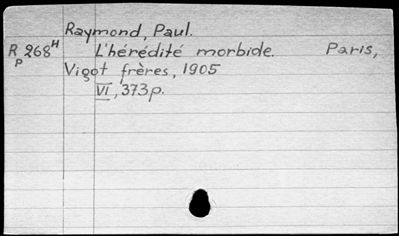 Raymond, Paul.
R 268 H L'hérédité morbide. Paris,
P
Vigot frères, 1905
VI, 373p.